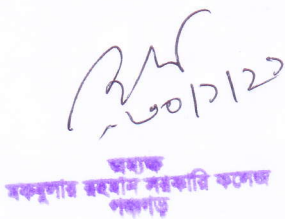 ৩০/১/২৩
অধ্যক্ষ
মকবুলার রহমান সরকারি কলেজ
পঞ্চগড়